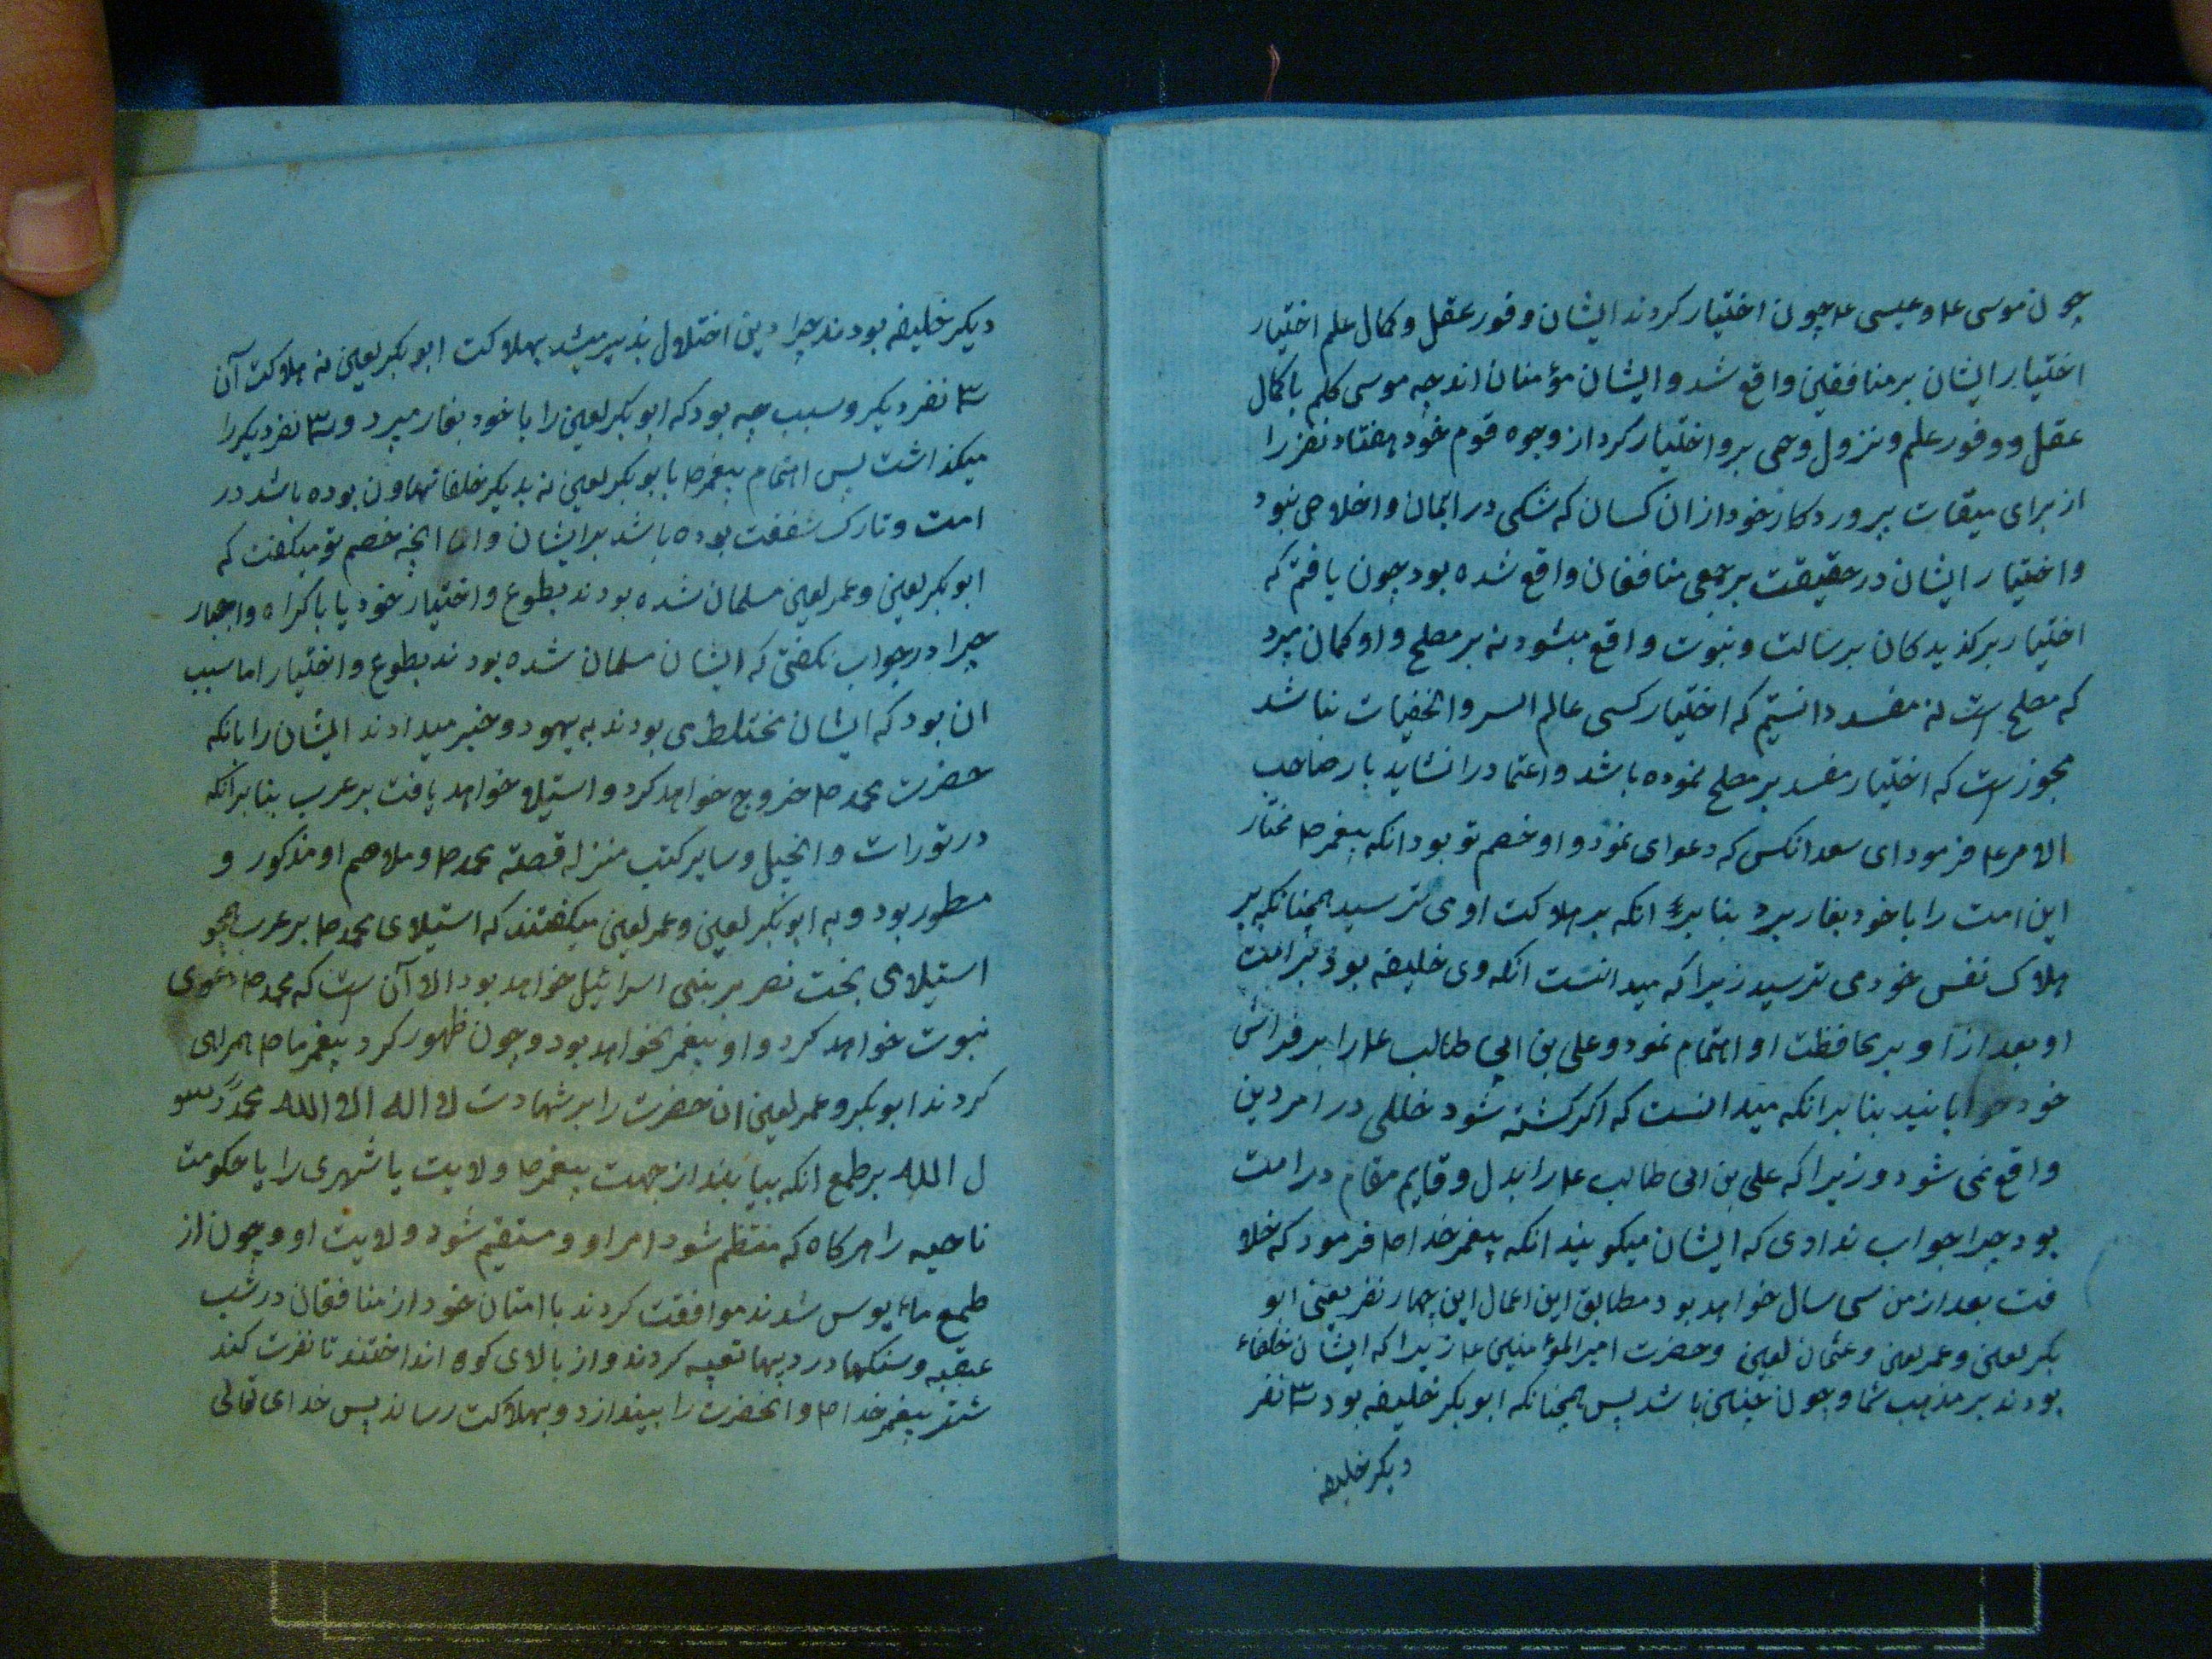 چون موسی ع و عیسی ع چون اختیار کردند ایشان وفور عقل و کمال علم اختیار
اختیار ایشان بر منافقین واقع شد و ایشان مؤمنان اند چه موسی کلیم با کمال
عقل و وفور علم و نزول وحی برو اختیار کرد از وجوه قوم خود هفتاد نفر را
از برای میقات پروردکار خود ازان کسان که شکی در ایمان و اخلاص نبود
و اختیار ایشان در حقیقت بر جمعی منافقان واقع شده بود چون یافتم که
اختیار برکذیدکان برسالت و نبوت واقع میشود نه بر مصلح و او کمان میرد
که مصلح است نه مفسد دانستیم که اختیار کسی عالم السر و الخفیات نباشد
مجوز است که اختیار مفسد بر مصلح نموده باشد و اعتماد را نشاید بار صاحب
الامر ع فرمود ای سعد انکس که دعوای نمود و او خصم تو بود انکه پیغمر ص مختار
این امت را با خود بغار برد بنا برء انکه بر هلاکت او می ترسید همچنانکه بر
هلاک نفس خود می ترسید زیرا که میدانست انکه وی خلیفه بود بر امت
او بعد از او بر محافظت او اهتمام نمود و علی بن ابی طالب ع را بر فراش
خود خوابانید بنا برانکه میدانست که اکر کشته شود خللی در امر دین
واقع نمی شود و زیرا که علی بن ابی طالب ع را بدل و قایم مقام در امت
بود چرا جواب ندادی که ایشان میکویند انکه پیغمر خدا ص فرمود که خلا
فت بعد از من سی سال خواهد بود مطابق این اعمال این چهار نفر یعنی ابو
بکر لعین و عمر لعین و عثمان لعین و حضرت امیر المؤمنین ع زیرا که ایشان خلفاء
بودند بر مذهب شما و چون چنین باشد پس همچنانکه ابو بکر خلیفه بود ۳ نفر
دیکر خلیفه
دیکر خلیفه بودند چرا دین اختلال پذیر میشد بهلاکت ابو بکر لعین نه هلاکت آن
۳ نفر دیکر و سبب چه بود که ابو بکر لعین را با خود بغار میبرد و ۳ نفر دیکر را
میکذاشت پس اهتمام پیغمر ص با بو بکر لعین نه بدیکر خلفا تهاون بوده باشد در
امت و تارک شفقت بوده باشد بر ایشان و اما انچه خصم تو میکفت که
ابو بکر لعین و عمر لعین مسلمان شده بودند بطوع و اختیار خود یا باکراه و اجبار
چرا در جواب نکفتی که ایشان مسلمان شده بودند بطوع و اختیار اما سبب
ان بود که ایشان مختلط می بودند به یهود و خبر میدادند ایشان را بانکه
حضرت محمد ص خروج خواهد کرد و استیلا خواهد یافت بر عرب بنا برانکه
در تورات و انجیل و سایر کتب منزله قصه محمد ص و ملاحم او مذکور و
مسطور بود و به ابو بکر لعین و عمر لعین میکفتند که استیلای محمد ص بر عرب همچو
استیلای بخت نصر بر بنی اسرائیل خواهد بود الا آن است که محمد ص دعوی
نبوت خواهد کرد و او پیغمر نخواهد بود و چون ظهور کرد پیغمر ما ص همراهی
کردند ابو بکر و عمر لعین ان حضرت را بر شهادت لا اله الا الله محمد رسو
ل الله بر طمع انکه بیابند از جهت پیغمر ص ولایت یا شهری را یا حکومت
ناحیه را هرکاه که منتظم شود امر او و مستقیم شود ولایت او و چون از
طمع مایوس شدند موافقت کردند با امثان خود از منافقان در شب
عقبه و سنکها در دبها تعبیه کردند و از بالای کوه انداختند تا نفرت کند
شتر پیغمر خدا ص و انحضرت را بیندازد و بهلاکت رساند پس خدای تعالی